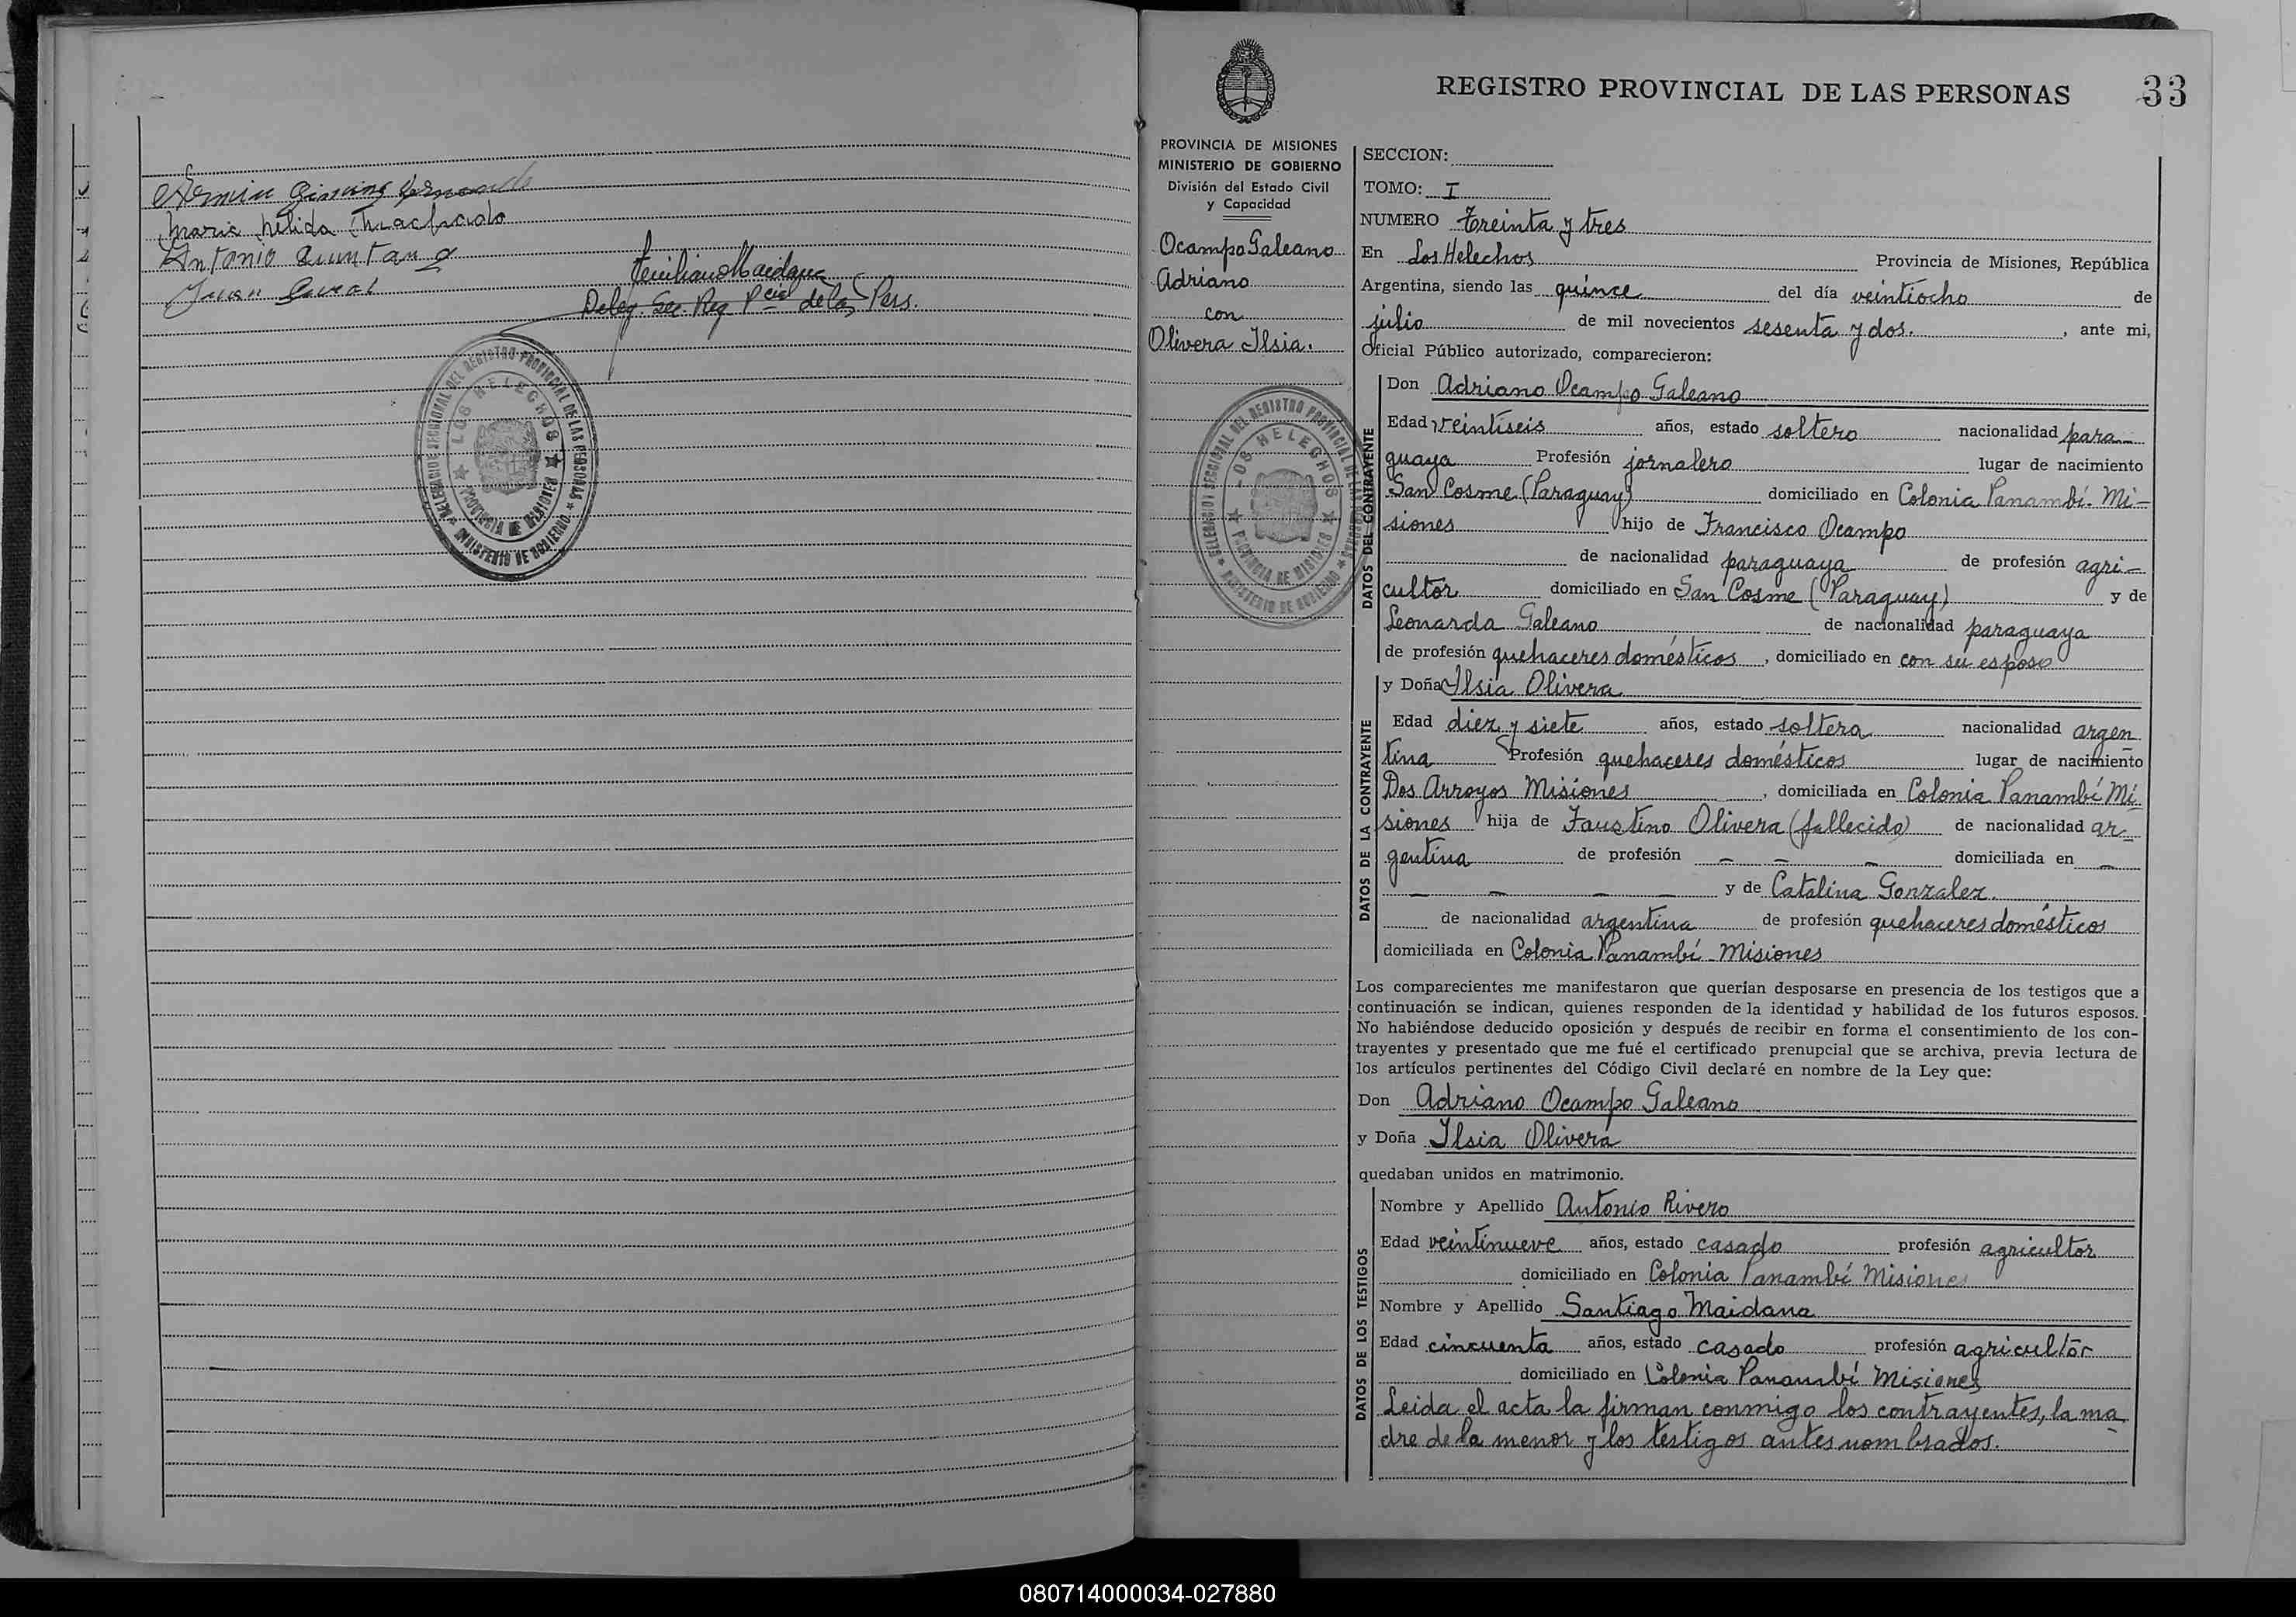 Maria Nelida Machado
Antonio Quintana
Juan
Deleg. Sec. Reg Pcial de las Pers.
DELEGACION SECCIONAL DEL REGISTRO PROVINCIAL DE LAS PERSONAS
LOS HELECHOS
PROVINCIA DE MISIONES
MINISTERIO DE GOBIERNO
REGISTRO PROVINCIAL DE LAS PERSONAS 33
PROVINCIA DE MISIONES
MINISTERIO DE GOBIERNO
División del Estado Civil
y Capacidad
Ocampo Galeano
Adriano
con
Olivera Ilsia.
DELEGACION SECCIONAL DEL REGISTRO PROVINCIAL DE LAS PERSONAS
LOS HELECHOS
PROVINCIA DE MISIONES
MINISTERIO DE GOBIERNO
SECCION:
TOMO: I
NUMERO Treinta y tres
En Los Helechos Provincia de Misiones, República
Argentina, siendo las quince del día veintiocho de
julio de mil novecientos sesenta y dos. , ante mi,
Oficial Público autorizado, comparecieron:
DATOS DEL CONTRAYENTE
Don Adriano Ocampo Galeano
Edad veintiseis años, estado soltero nacionalidad para-
guaya Profesión jornalero lugar de nacimiento
San Cosme (Paraguay) domiciliado en Colonia Panambí. Mi-
siones hijo de Francisco Ocampo
de nacionalidad paraguaya de profesión agri-
cultor domiciliado en San Cosme (Paraguay) y de
Leonarda Galeano de nacionalidad paraguaya
de profesión quehaceres domésticos , domiciliado en con su esposo
DATOS DE LA CONTRAYENTE
y Doña Ilsia Olivera
Edad diez y siete años, estado soltera nacionalidad argen-
tina Profesión quehaceres domésticos lugar de nacimiento
Dos Arroyos Misiones , domiciliada en Colonia Panambí Mi-
siones hija de Faustino Olivera (fallecido) de nacionalidad ar-
gentina de profesión — — — domiciliada en —
— — — — y de Catalina Gonzalez.
de nacionalidad argentina de profesión quehaceres domésticos
domiciliada en Colonia Panambí - Misiones
Los comparecientes me manifestaron que querían desposarse en presencia de los testigos que a
continuación se indican, quienes responden de la identidad y habilidad de los futuros esposos.
No habiéndose deducido oposición y después de recibir en forma el consentimiento de los con-
trayentes y presentado que me fué el certificado prenupcial que se archiva, previa lectura de
los artículos pertinentes del Código Civil declaré en nombre de la Ley que:
Don Adriano Ocampo Galeano
y Doña Ilsia Olivera
quedaban unidos en matrimonio.
DATOS DE LOS TESTIGOS
Nombre y Apellido Antonio Rivero
Edad veintinueve años, estado casado profesión agricultor
domiciliado en Colonia Panambí Misiones
Nombre y Apellido Santiago Maidana
Edad cincuenta años, estado casado profesión agricultor
domiciliado en Colonia Panambí Misiones
Leida el acta la firman conmigo los contrayentes, la ma-
dre de la menor y los testigos antes nombrados.
080714000034-027880